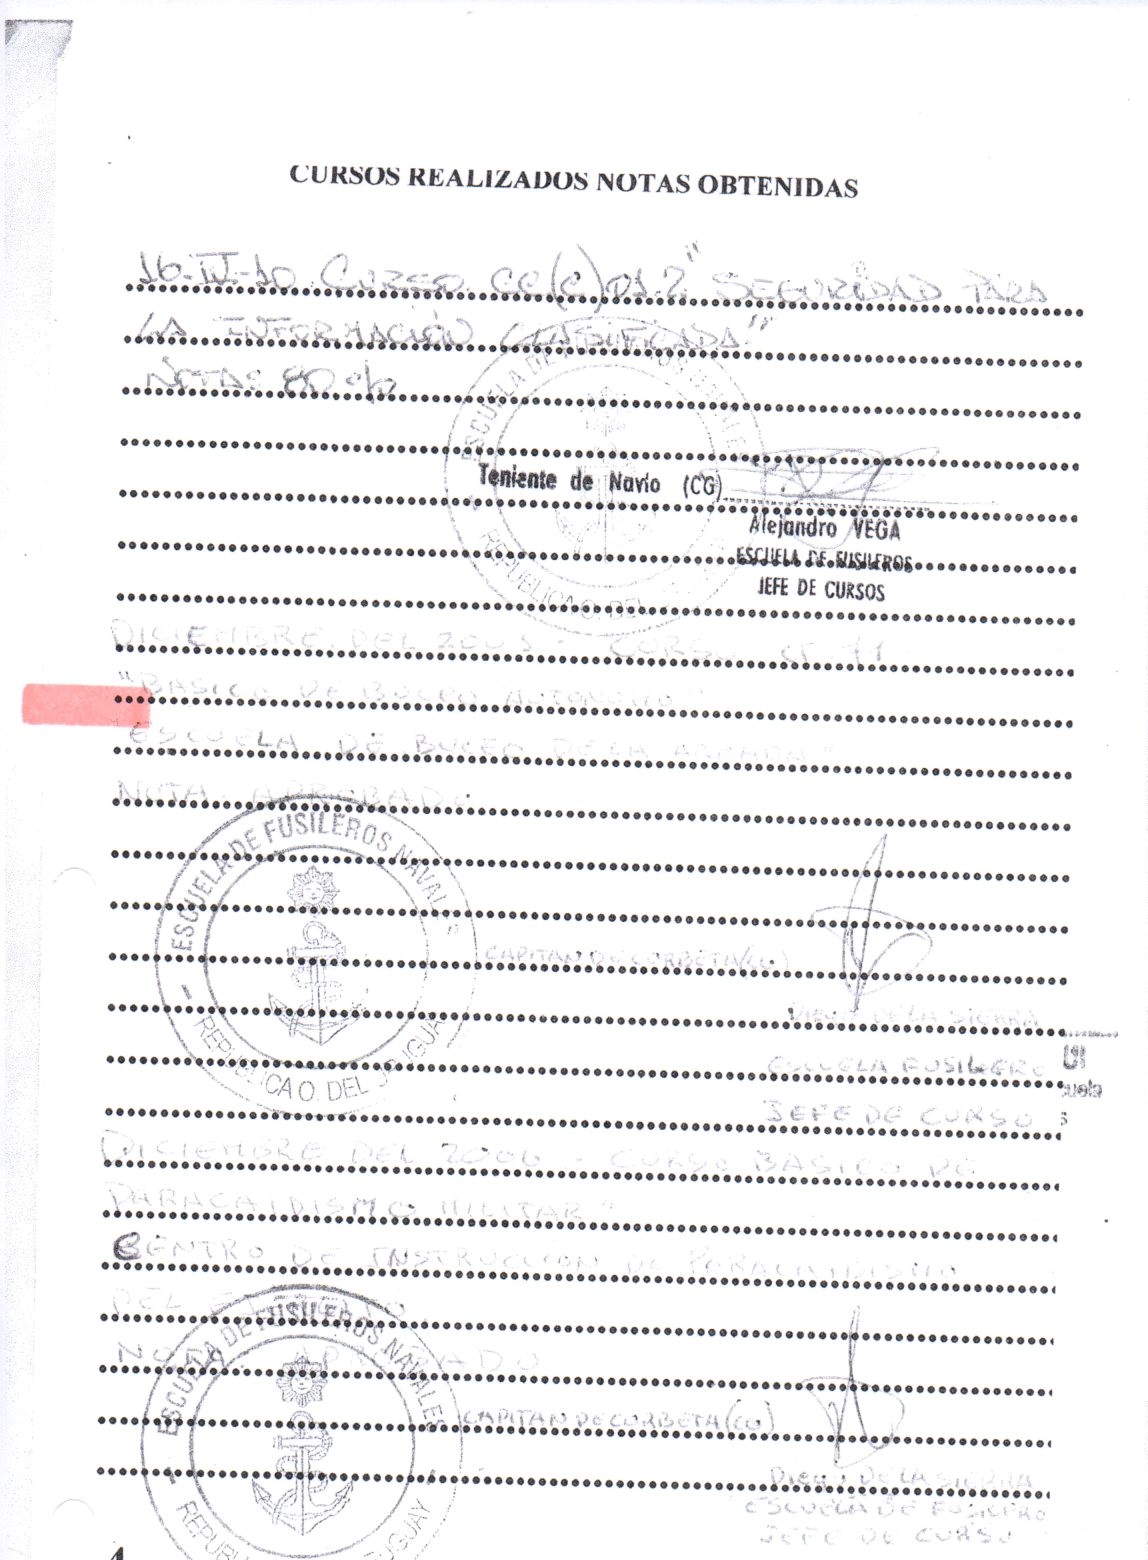 CURSOS REALIZADOS NOTAS OBTENIDAS
16-IV-10 CURSO CC(C) 01.2 "SEGURIDAD PARA
LA INFORMACIÓN CLASIFICADA"
NOTA: 80 %
ESCUELA DE
REPUBLICA O. DEL
Teniente de Navío (CG)
Alejandro VEGA
ESCUELA DE FUSILEROS
JEFE DE CURSOS
DICIEMBRE DEL CURSO
"BASICO DE BUCEO AUTONOMO"
ESCUELA DE BUCEO DE LA ARMADA"
NOTA: APROBADO
ESCUELA DE FUSILEROS NAVAL
REPUBLICA O. DEL URUGUA
CAPITAN DE CORBETA (CG)
DIEGO DE LA SIERRA
ESCUELA FUSILERO
JEFE DE CURSO
uela
s
DICIEMBRE DEL 2006 - CURSO BASICO DE
PARACAIDISMO MILITAR"
CENTRO DE INSTRUCCION DE PARACAIDISMO
DEL EJERCITO
NOTA: APROBADO
ESCUELA DE FUSILEROS NAVALES
REPUBL UGUAY
CAPITAN DE CORBETA (CG)
DIEGO DE LA SIERRA
ESCUELA DE FUSILERO
JEFE DE CURSO